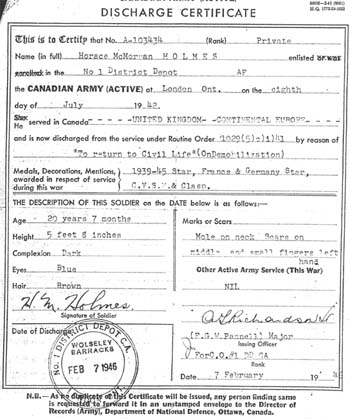 DISCHARGE CERTIFICATE
This is to Certify that No. A-103434 (Rank) Private
Name (in full) Horace McMorran HOLMES enlisted or was
enrolled in the No 1 District Depot AF
the CANADIAN ARMY (ACTIVE) at London Ont. on the eighth
day of July 1942.
He served in Canada ----UNITED KINGDOM--CONTINENTAL EUROPE----
and is now discharged from the service under Routine Order 1029(5)-(1)41 by reason of
"To return to Civil Life"(OnDemobilization)
Medals, Decorations, Mentions, awarded in respect of service during this war
1939-45 Star, France & Germany Star,
C.V.S.M.& Clasp.
THE DESCRIPTION OF THIS SOLDIER on the DATE below is as follows:—
Age 20 years 7 months
Height 5 feet 6 inches
Complexion Dark
Eyes Blue
Hair Brown
H. M. Holmes
Signature of Soldier
Date of Discharge
No. 1 DISTRICT DEPOT C.A.
WOLSELEY BARRACKS
FEB 7 1946
Marks or Scars
Mole on neck Scars on
middle and small fingers left
hand
Other Active Army Service (This War)
NIL
(F.G.W. Pannell) Major
Issuing Officer
ForC.O.#1 DD CA
Date 7 February
N.B.—As no duplicate of this Certificate will be issued, any person finding same
is requested to forward it in an unstamped envelope to the Director of
Records (Army), Department of National Defence, Ottawa, Canada.